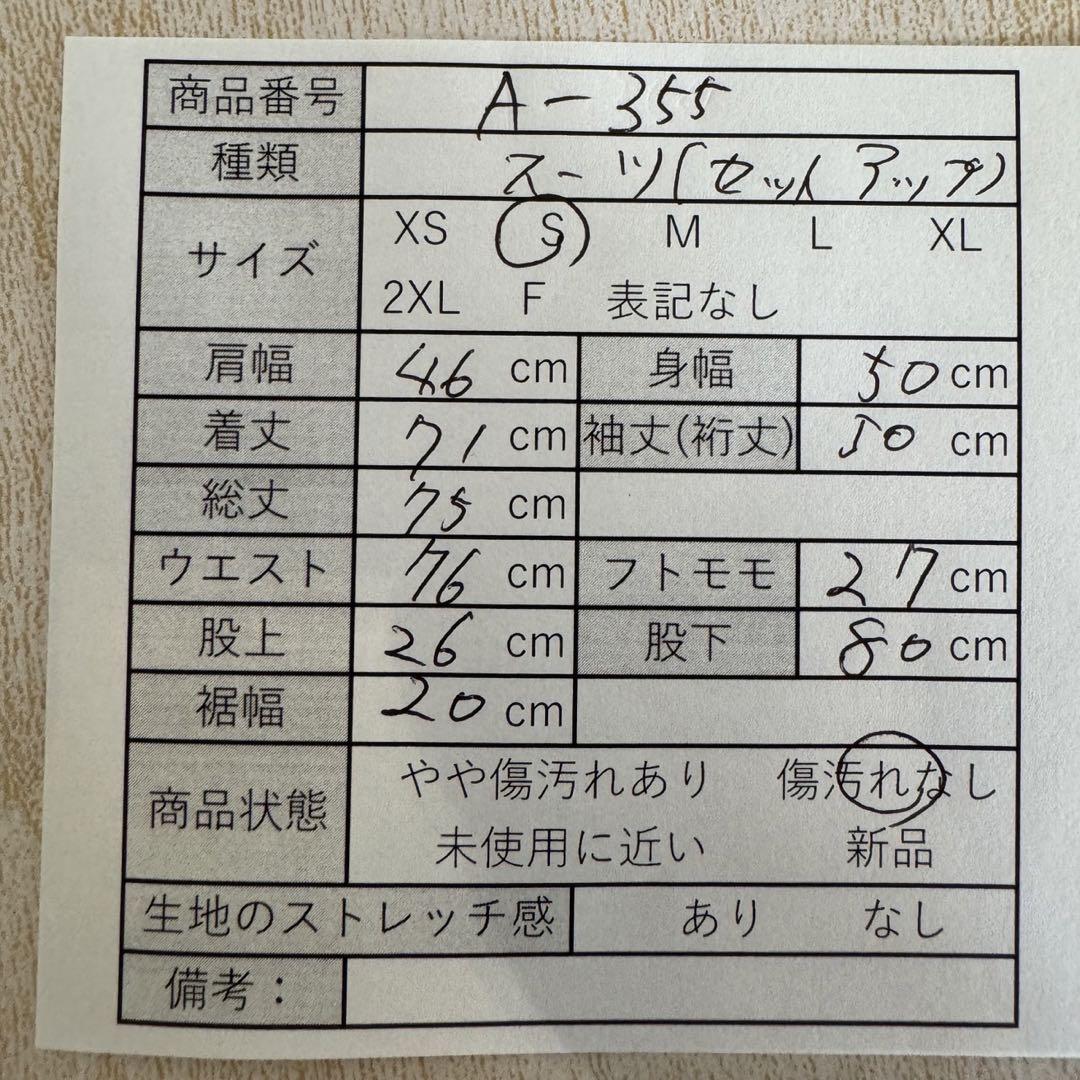 商品番号 A-355
種類 スーツ(セットアップ)
サイズ XS S M L XL
2XL F 表記なし
肩幅 46 cm 身幅 50 cm
着丈 71 cm 袖丈(裄丈) 50 cm
総丈 75 cm
ウエスト 76 cm フトモモ 27 cm
股上 26 cm 股下 80 cm
裾幅 20 cm
商品状態 やや傷汚れあり 傷汚れなし
未使用に近い 新品
生地のストレッチ感 あり なし
備考：